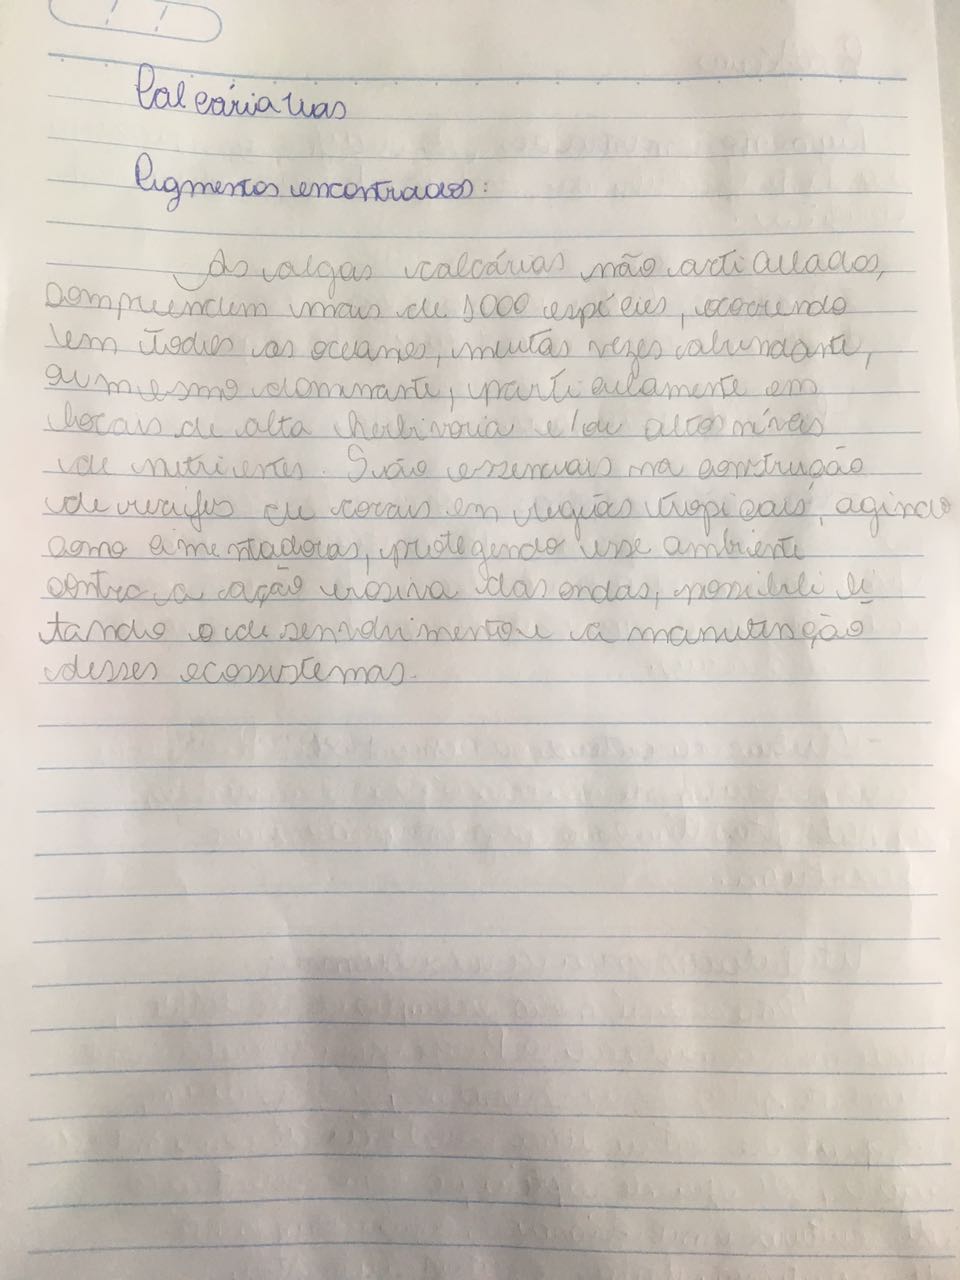 Calcárias
Pigmentos encontrados:
As algas calcárias não articulados,
compreendem mais de 1000 espécies, ocorrendo
em todos os oceanos, muitas vezes abundante,
ou mesmo dominante, particulamente em
locais de alta herbivoria e/ou altos níveis
de nutrientes. São essenciais na construção
de recifes de corais em regiões tropicais, agindo
como cimentadoras, protegendo esse ambiente
contra a ação erosiva das ondas, possibili
tando o desenvolvimento e a manutenção
desses ecossistemas.